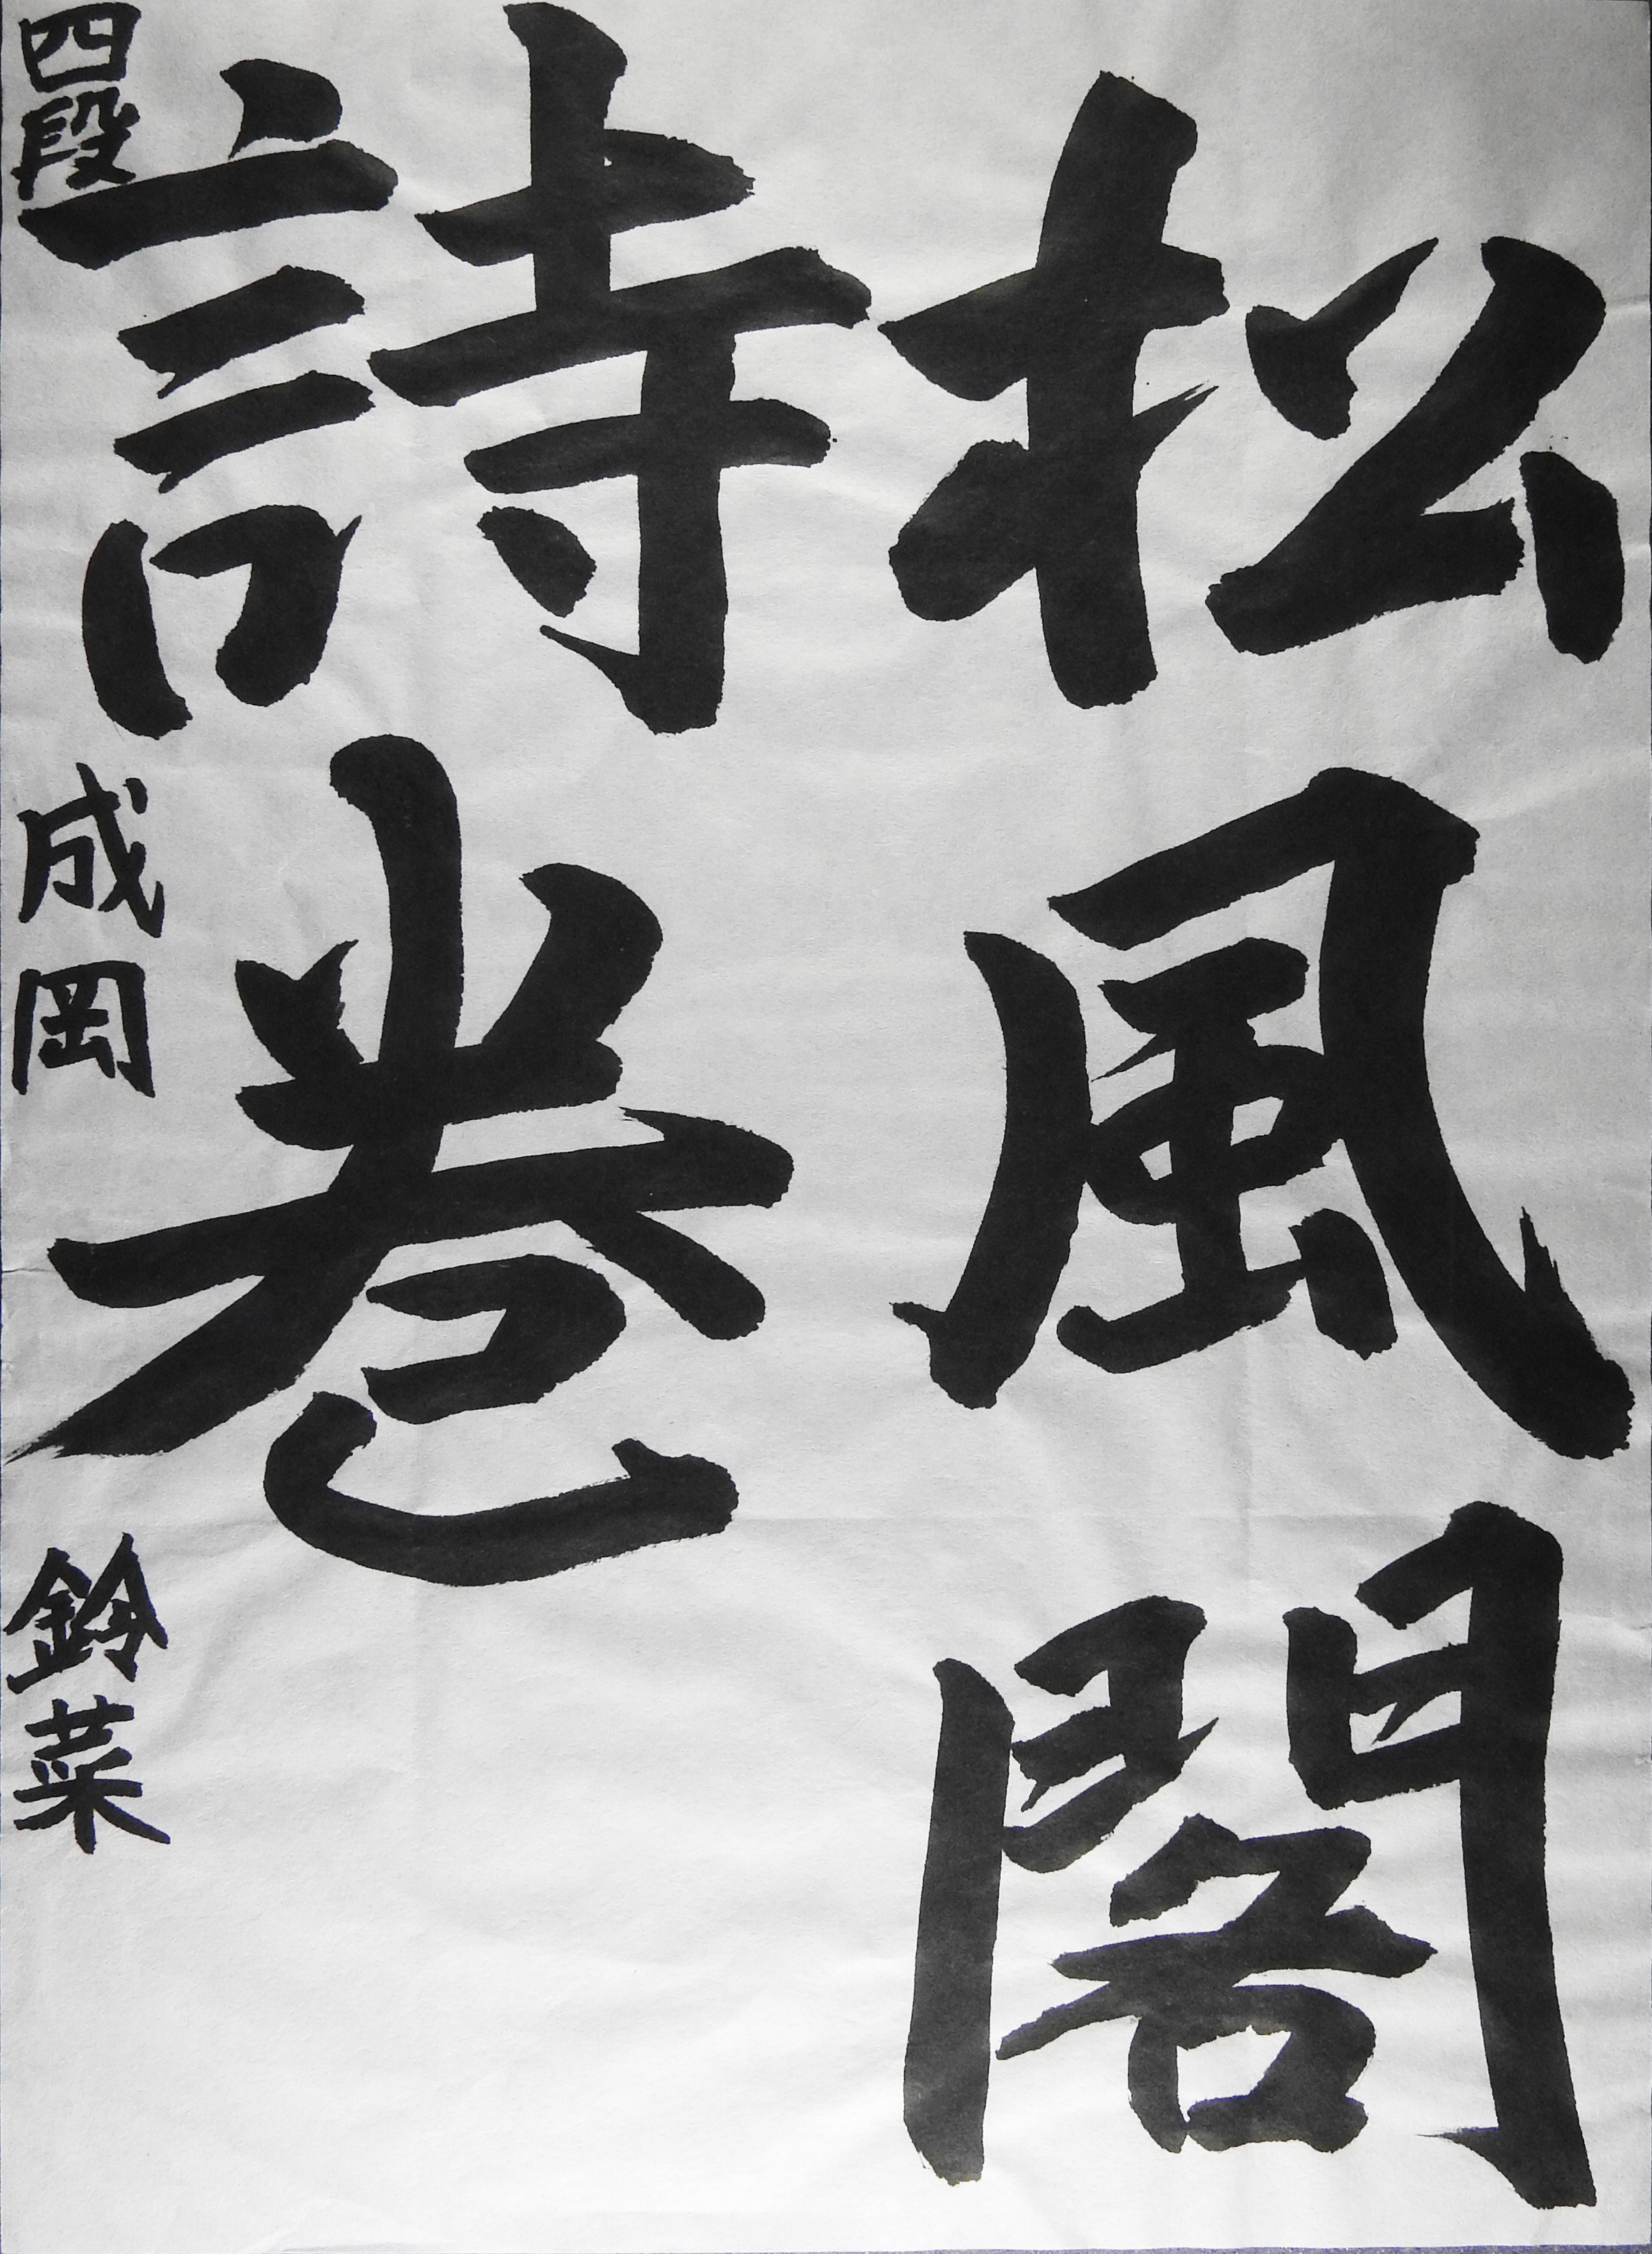 松風閣
詩巻
四段 成岡 鈴菜